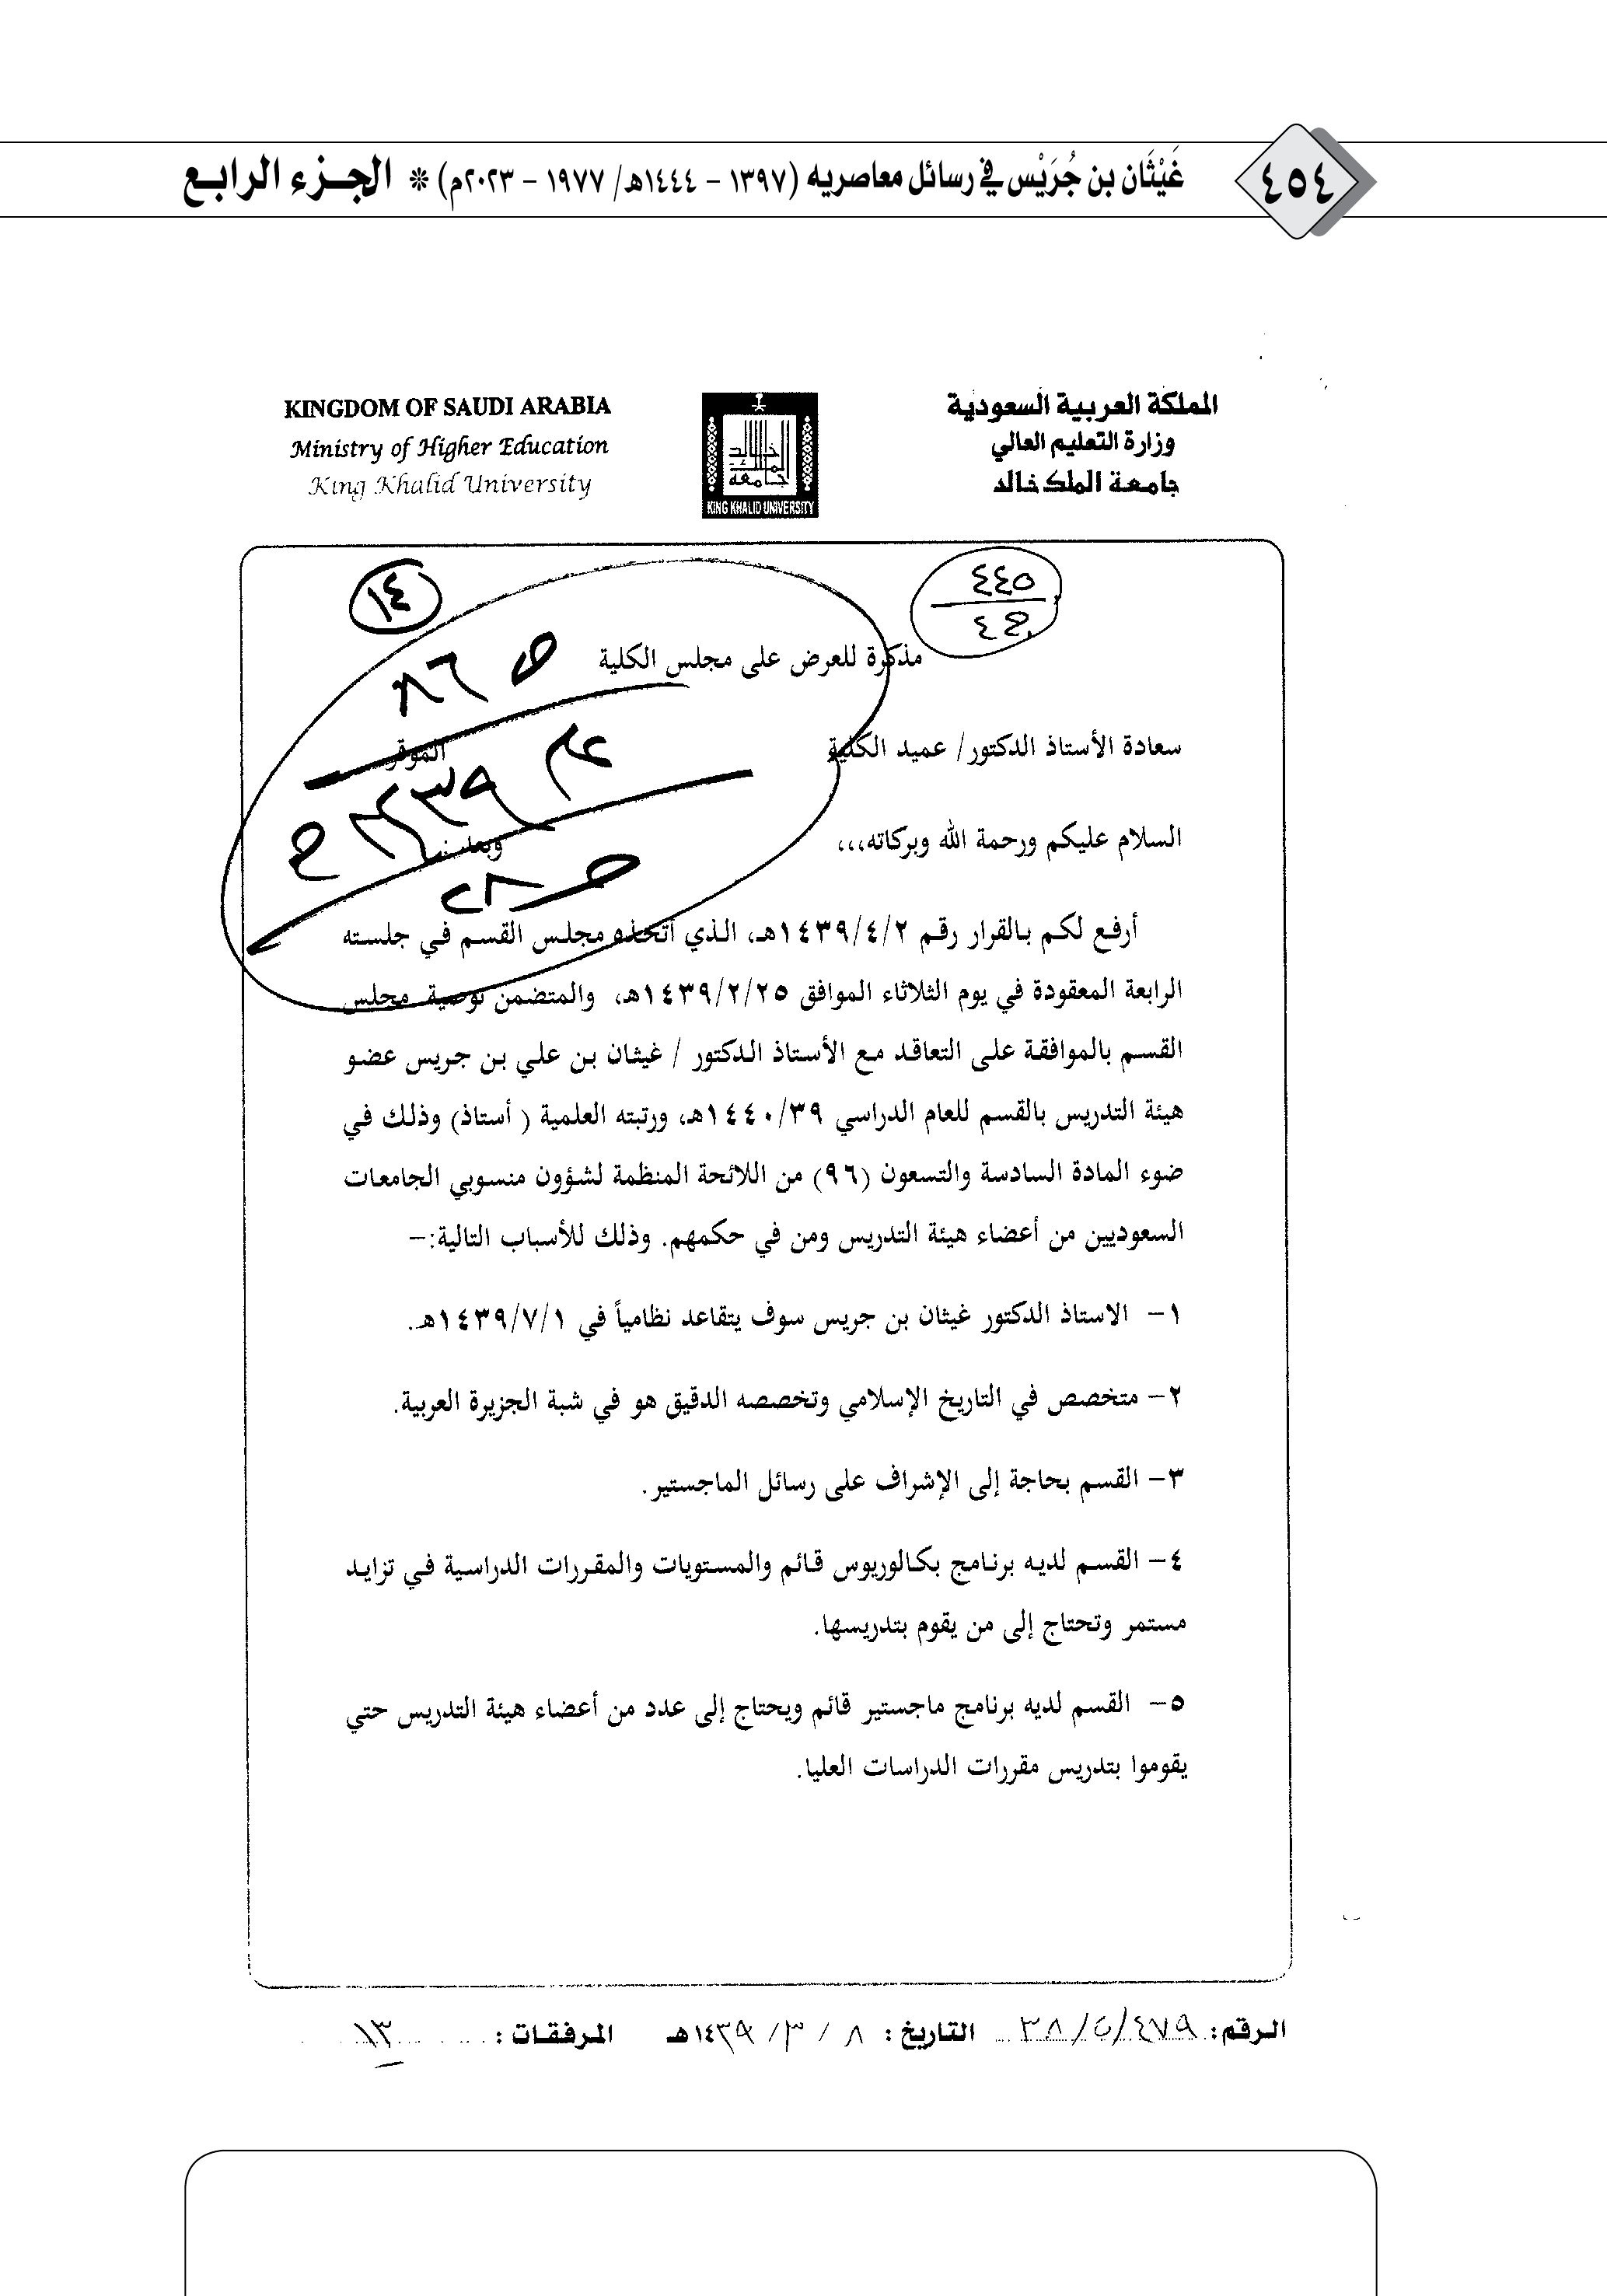 ٤٥٤
غَيْثَان بن جُرَيْس في رسائل معاصريه (١٣٩٧ – ١٤٤٤هـ/ ١٩٧٧ – ٢٠٢٣م) * الجـزء الرابـع
المملكة العربية السعودية
وزارة التعليم العالي
جامعة الملك خالد
KING KHALID UNIVERSITY
KINGDOM OF SAUDI ARABIA
Ministry of Higher Education
King Khalid University
١٤
مذكرة للعرض على مجلس الكلية
سعادة الأستاذ الدكتور/ عميد الكلية الموقر
السلام عليكم ورحمة الله وبركاته،،، وبعد:
أرفع لكم بالقرار رقم ١٤٣٩/٤/٢هـ، الذي اتخذه مجلس القسم في جلسته
الرابعة المعقودة في يوم الثلاثاء الموافق ١٤٣٩/٢/٢٥هـ، والمتضمن توصية مجلس
القسم بالموافقة على التعاقد مع الأستاذ الدكتور / غيثان بن علي بن جريس عضو
هيئة التدريس بالقسم للعام الدراسي ١٤٤٠/٣٩هـ، ورتبته العلمية ( أستاذ) وذلك في
ضوء المادة السادسة والتسعون (٩٦) من اللائحة المنظمة لشؤون منسوبي الجامعات
السعوديين من أعضاء هيئة التدريس ومن في حكمهم. وذلك للأسباب التالية:–
١– الاستاذ الدكتور غيثان بن جريس سوف يتقاعد نظامياً في ١٤٣٩/٧/١هـ.
٢– متخصص في التاريخ الإسلامي وتخصصه الدقيق هو في شبة الجزيرة العربية.
٣– القسم بحاجة إلى الإشراف على رسائل الماجستير.
٤– القسم لديه برنامج بكالوريوس قائم والمستويات والمقررات الدراسية في تزايد
مستمر وتحتاج إلى من يقوم بتدريسها.
٥– القسم لديه برنامج ماجستير قائم ويحتاج إلى عدد من أعضاء هيئة التدريس حتي
يقوموا بتدريس مقررات الدراسات العليا.
الرقم: ٣٨/٥/٤٧٩ التاريخ: ٨ / ٣ / ١٤٣٩هـ المرفقات: ١٣